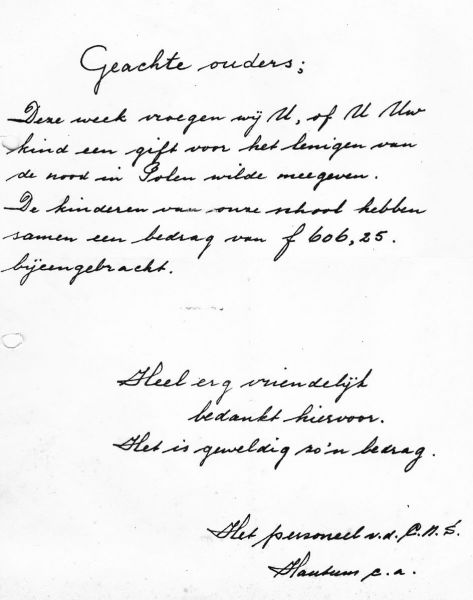 Geachte ouders;
Deze week vroegen wij U, of U Uw
kind een gift voor het lenigen van
de nood in Polen wilde meegeven.
De kinderen van onze school hebben
samen een bedrag van f 606,25.
bijeengebracht.
Heel erg vriendelijk
bedankt hiervoor.
Het is geweldig zo'n bedrag.
Het personeel v.d. C.N.S.
Hantum c.a.